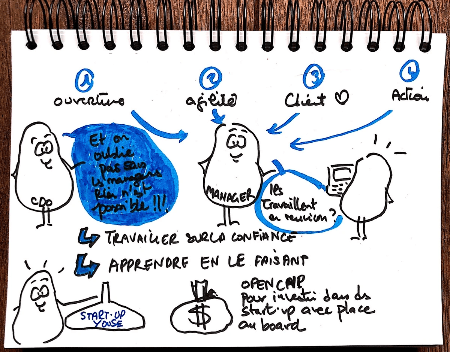 1 2 3 4
ouverture agilité Client ♡ Action
Et on
oublie
pas sans
les managers
Rien n'est
possible !!!
CDO
MANAGER
Ils
travaillent
en reunion ?
TRAVAILLER SUR LA CONFIANCE
APPRENDRE EN LE FAISANT
START-UP
YOUSE
$
OPEN CNP
Pour investir dans des
start-up avec place
au board